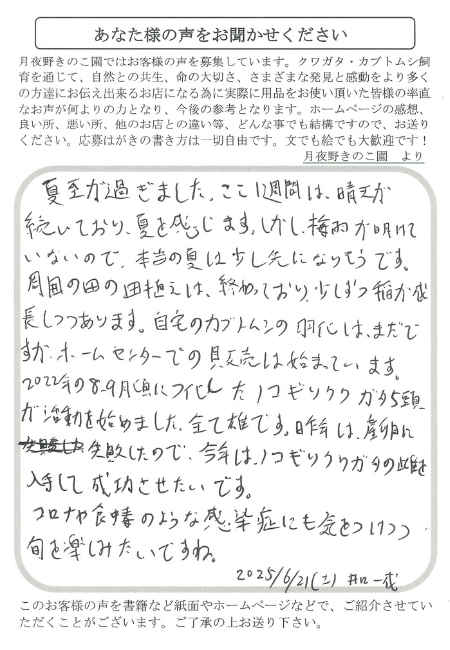 あなた様の声をお聞かせください
月夜野きのこ園ではお客様の声を募集しています。クワガタ・カブトムシ飼
育を通じて、自然との共生、命の大切さ、さまざまな発見と感動をより多く
の方達にお伝え出来るお店になる為に実際に用品をお使い頂いた皆様の率直
なお声が何よりの力となり、今後の参考となります。ホームページの感想、
良い所、悪い所、他のお店との違い等、どんな事でも結構ですので、お送り
ください。応募はがきの書き方は一切自由です。文でも絵でも大歓迎です！
月夜野きのこ園　より
夏至が過ぎました。ここ1週間は、晴天が
続いており、夏を感じます。しかし、梅雨が明けて
いないので、本当の夏は少し先になりそうです。
周囲の田の田植えは、終わっており、少しずつ稲が成
長しつつあります。自宅のカブトムシの羽化は、まだで
すが、ホームセンターでの販売は始まっています。
2022年の8、9月頃にフ化したノコギリクワガタ5頭
が活動を始めました。全て雄です。昨年は、産卵に
失敗したので、今年は、ノコギリクワガタの雌を
入手して成功させたいです。
コロナや食中毒のような感染症にも気をつけつつ
旬を楽しみたいですね。
2025/6/21(土) 井口一成
このお客様の声を書籍など紙面やホームページなどで、ご紹介させてい
ただくことがございます。ご了承の上お送り下さい。